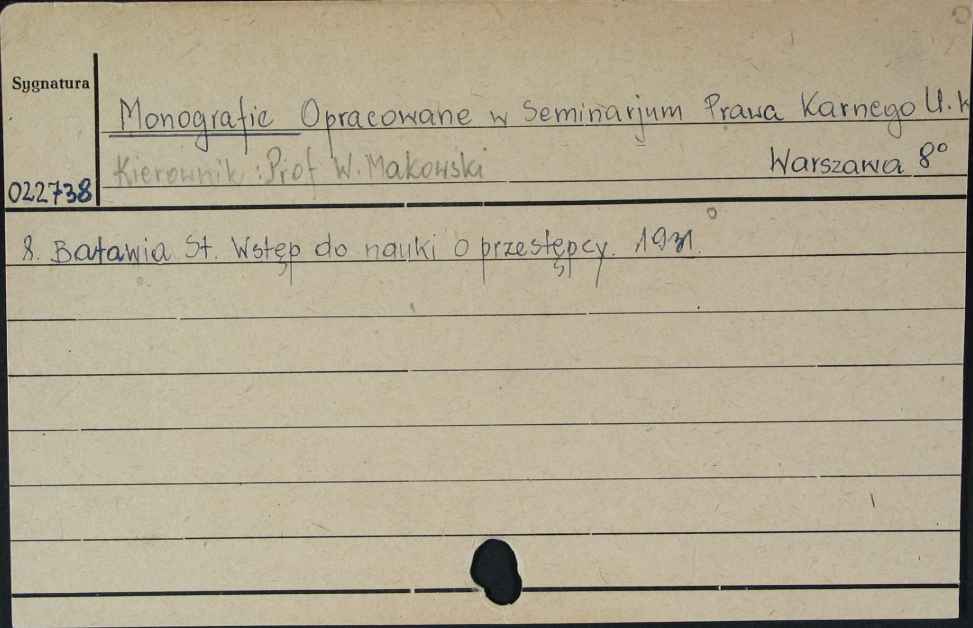 Sygnatura
Monografie Opracowane w Seminarjum Prawa Karnego U.W
Kierownik: Prof W. Makowski Warszawa 8°
022738
8. Batawia St. Wstęp do nauki o przestępcy. 1931.